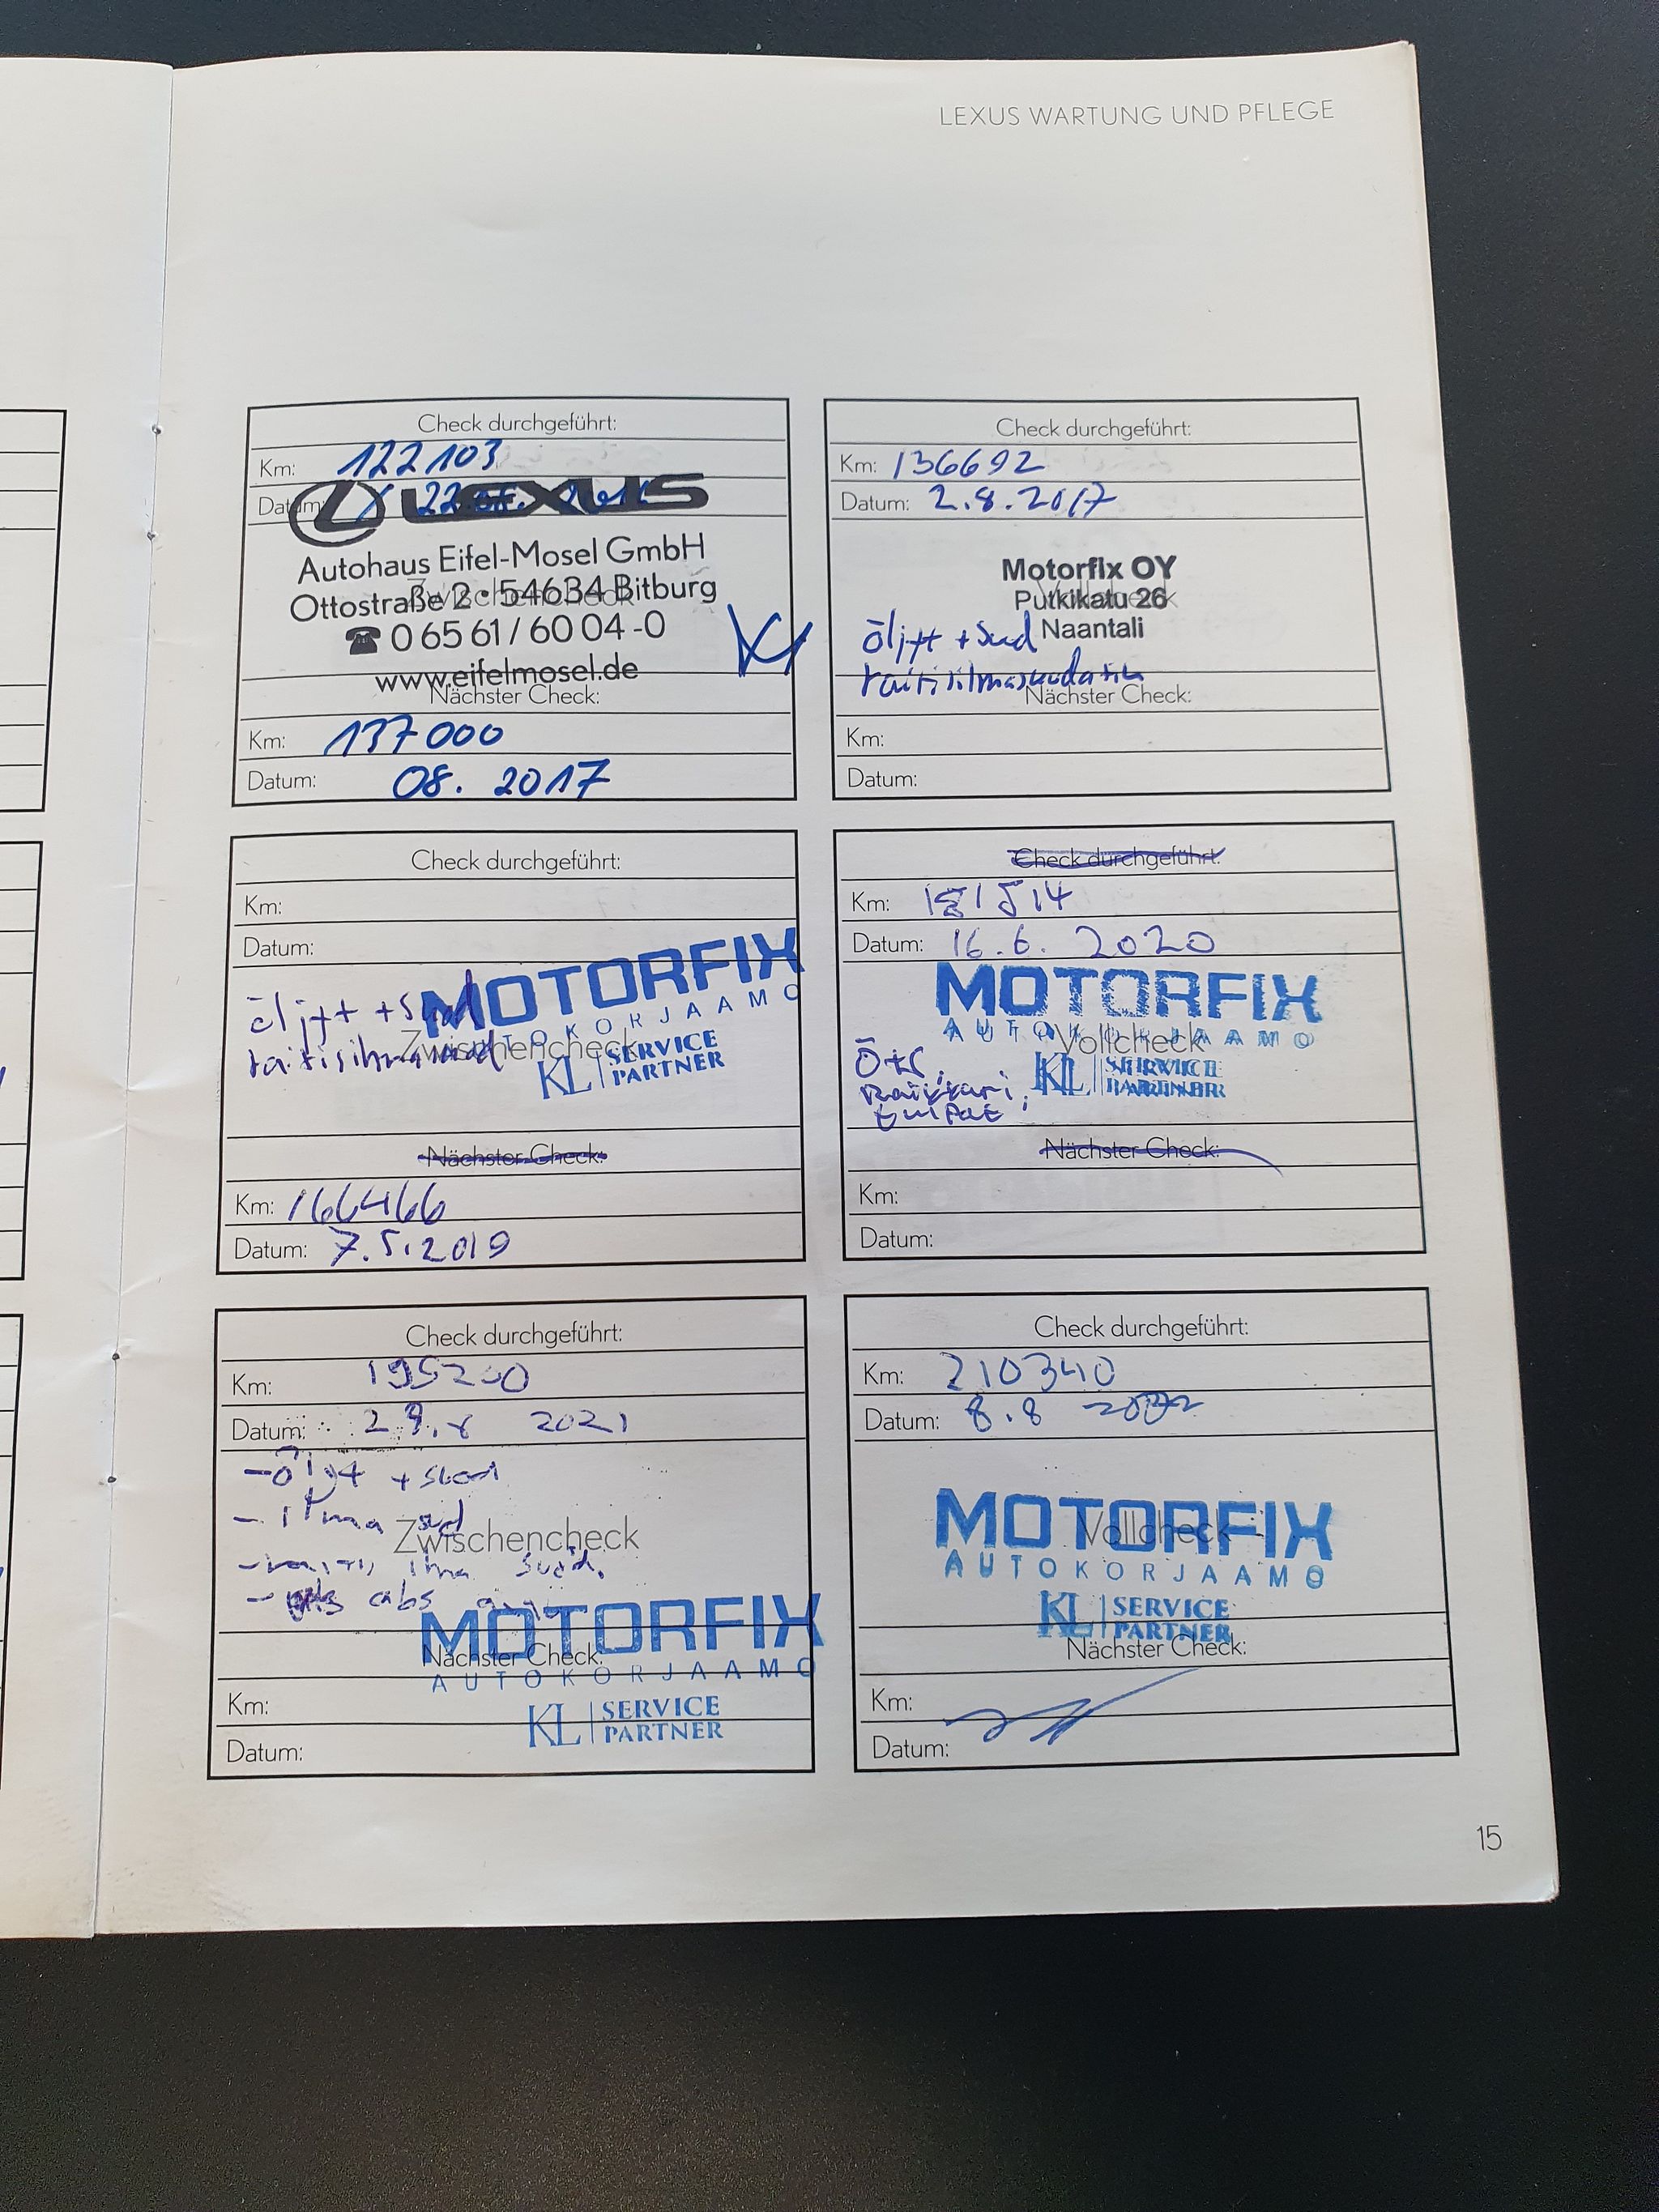 LEXUS WARTUNG UND PFLEGE
Check durchgeführt:
Km: 122103
Datum:
LEXUS
Autohaus Eifel-Mosel GmbH
Zwischencheck
Ottostraße 2 · 54634 Bitburg
☎ 0 65 61 / 60 04 -0
www.eifelmosel.de
Nächster Check:
Km: 137000
Datum: 08. 2017
Check durchgeführt:
Km: 136692
Datum: 2.8.2017
Motorfix OY
Vollcheck
Putkikatu 26
Naantali
öljyt + suod
raitisilmasuodatin
Nächster Check:
Km:
Datum:
Check durchgeführt:
Km:
Datum:
MOTORFIX
AUTOKORJAAMO
öljyt + suod
Zwischencheck
KL SERVICE
PARTNER
Nächster Check:
Km: 166466
Datum: 7.5.2019
Check durchgeführt:
Km: 181514
Datum: 16.6. 2020
MOTORFIX
AUTOKORJAAMO
Vollcheck
Ö+S,
KL SERVICE
PARTNER
Raikkari,
tulpat
Nächster Check:
Km:
Datum:
Check durchgeführt:
Km:
Datum: 2021
- öljyt + suod
- ilma
Zwischencheck
ilma suod.
MOTORFIX
Nächster Check:
AUTOKORJAAMO
KL SERVICE
PARTNER
Km:
Datum:
Check durchgeführt:
Km: 210340
Datum: 8.8 2022
MOTORFIX
Vollcheck
AUTOKORJAAMO
KL SERVICE
PARTNER
Nächster Check:
Km:
Datum:
15